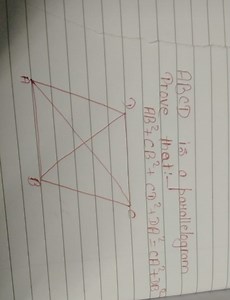 ABCD is a parallelogram
Prove that:-
AB²+CB²+CD²+DA²=CA²+DB²
D
C
A
B